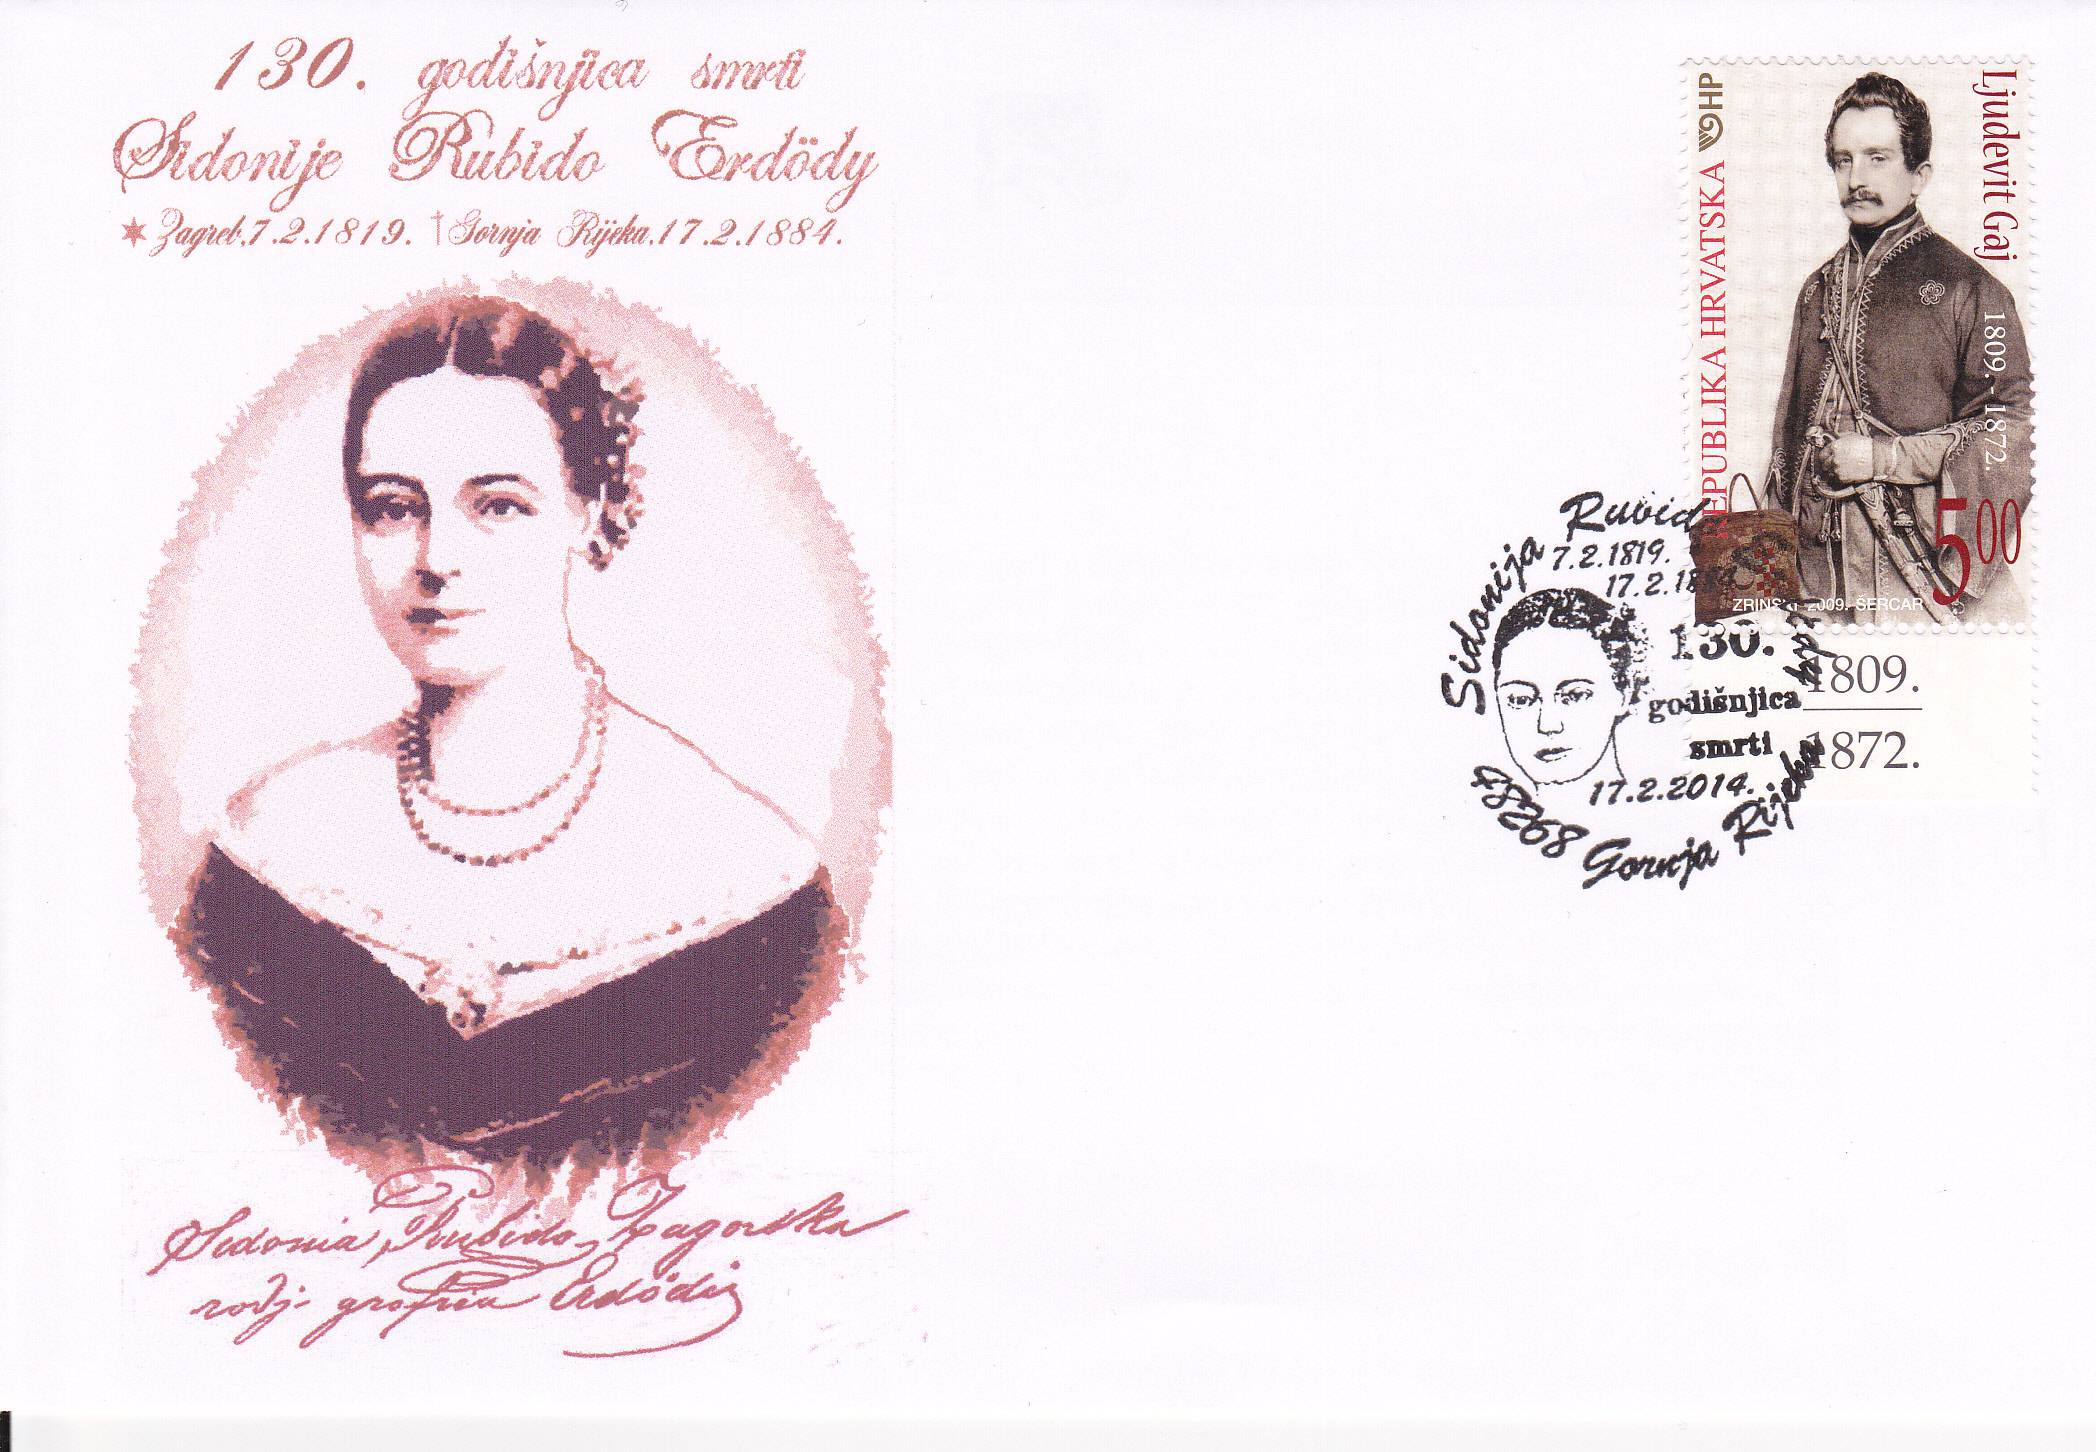 130. godišnjica smrti
Sidonije Rubido Erdödy
Zagreb.7.2.1819. †Gornja Rijeka.17.2.1884.
Sidonia Rubido Zagorska
rodj. grofica Erdödi
HP
REPUBLIKA HRVATSKA
Ljudevit Gaj
1809. - 1872.
500
ZRINSKI 2009. ŠERCAR
1809.
1872.
Sidonija Rubido
7.2.1819.
17.2.1884
130.
godišnjica
smrti
17.2.2014.
48268 Gornja Rijeka